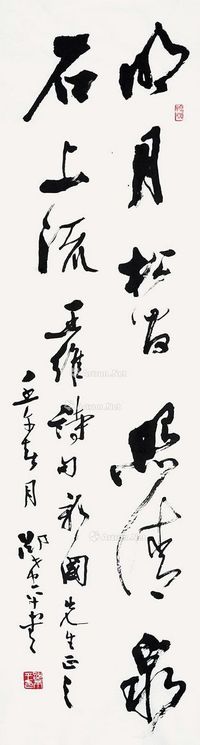 明月松間照清泉
石上流 王維詩句 國先生正之
月
Artron.Net